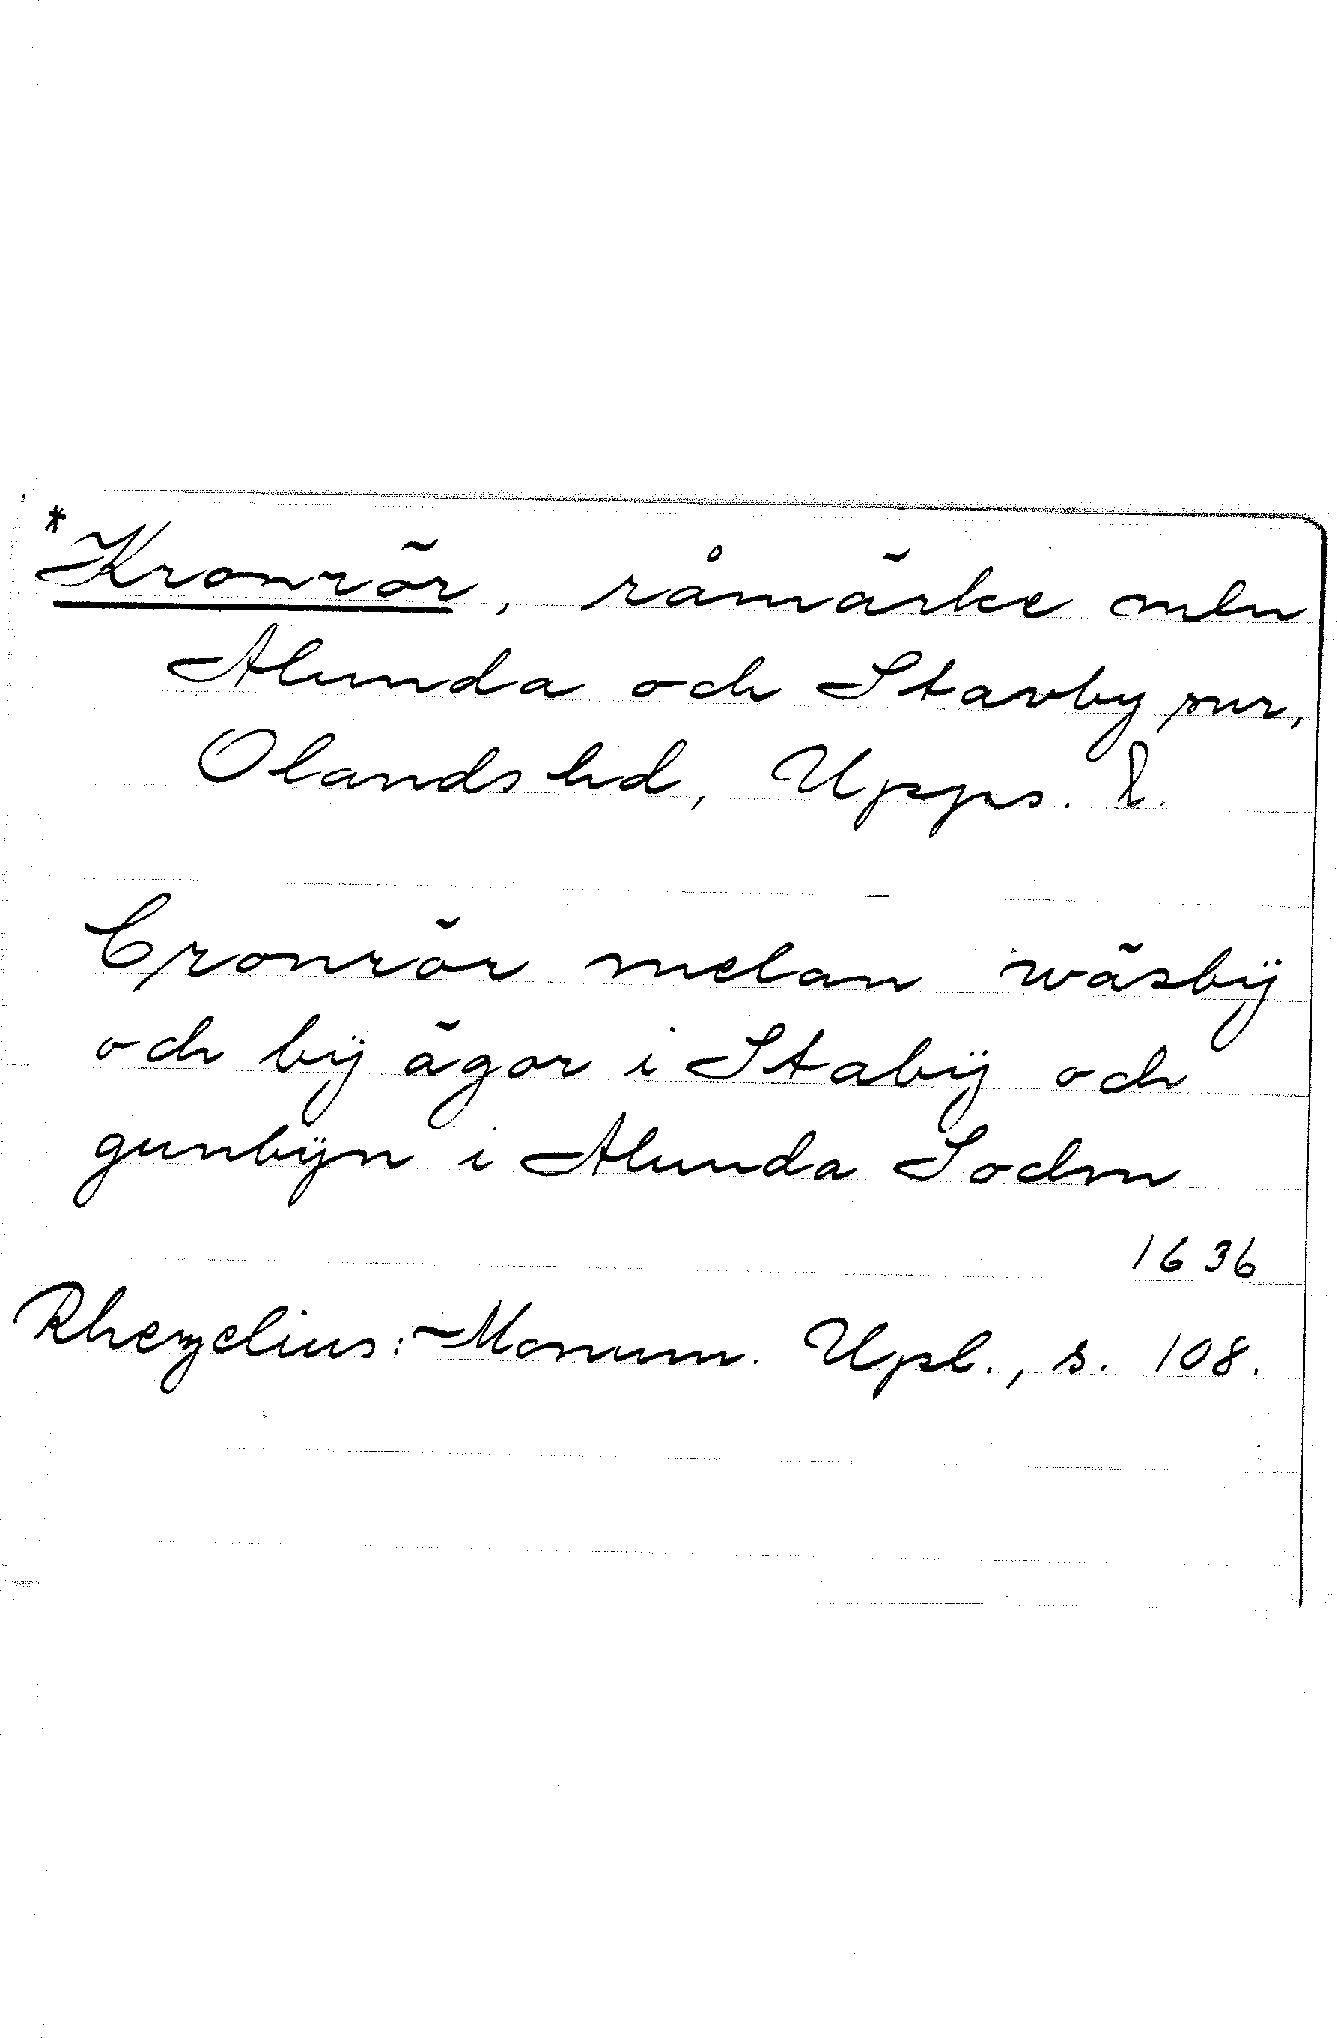 *Kronrör, råmärke mln
Alunda och Stavby snr,
Olands hd, Upps. l.
Cronrör melan wäsbÿ
och bÿ ägor i Stabÿ och
gunbÿn i Alunda Sochn
1636
Rhezelius: Monum. Upl., s. 108.